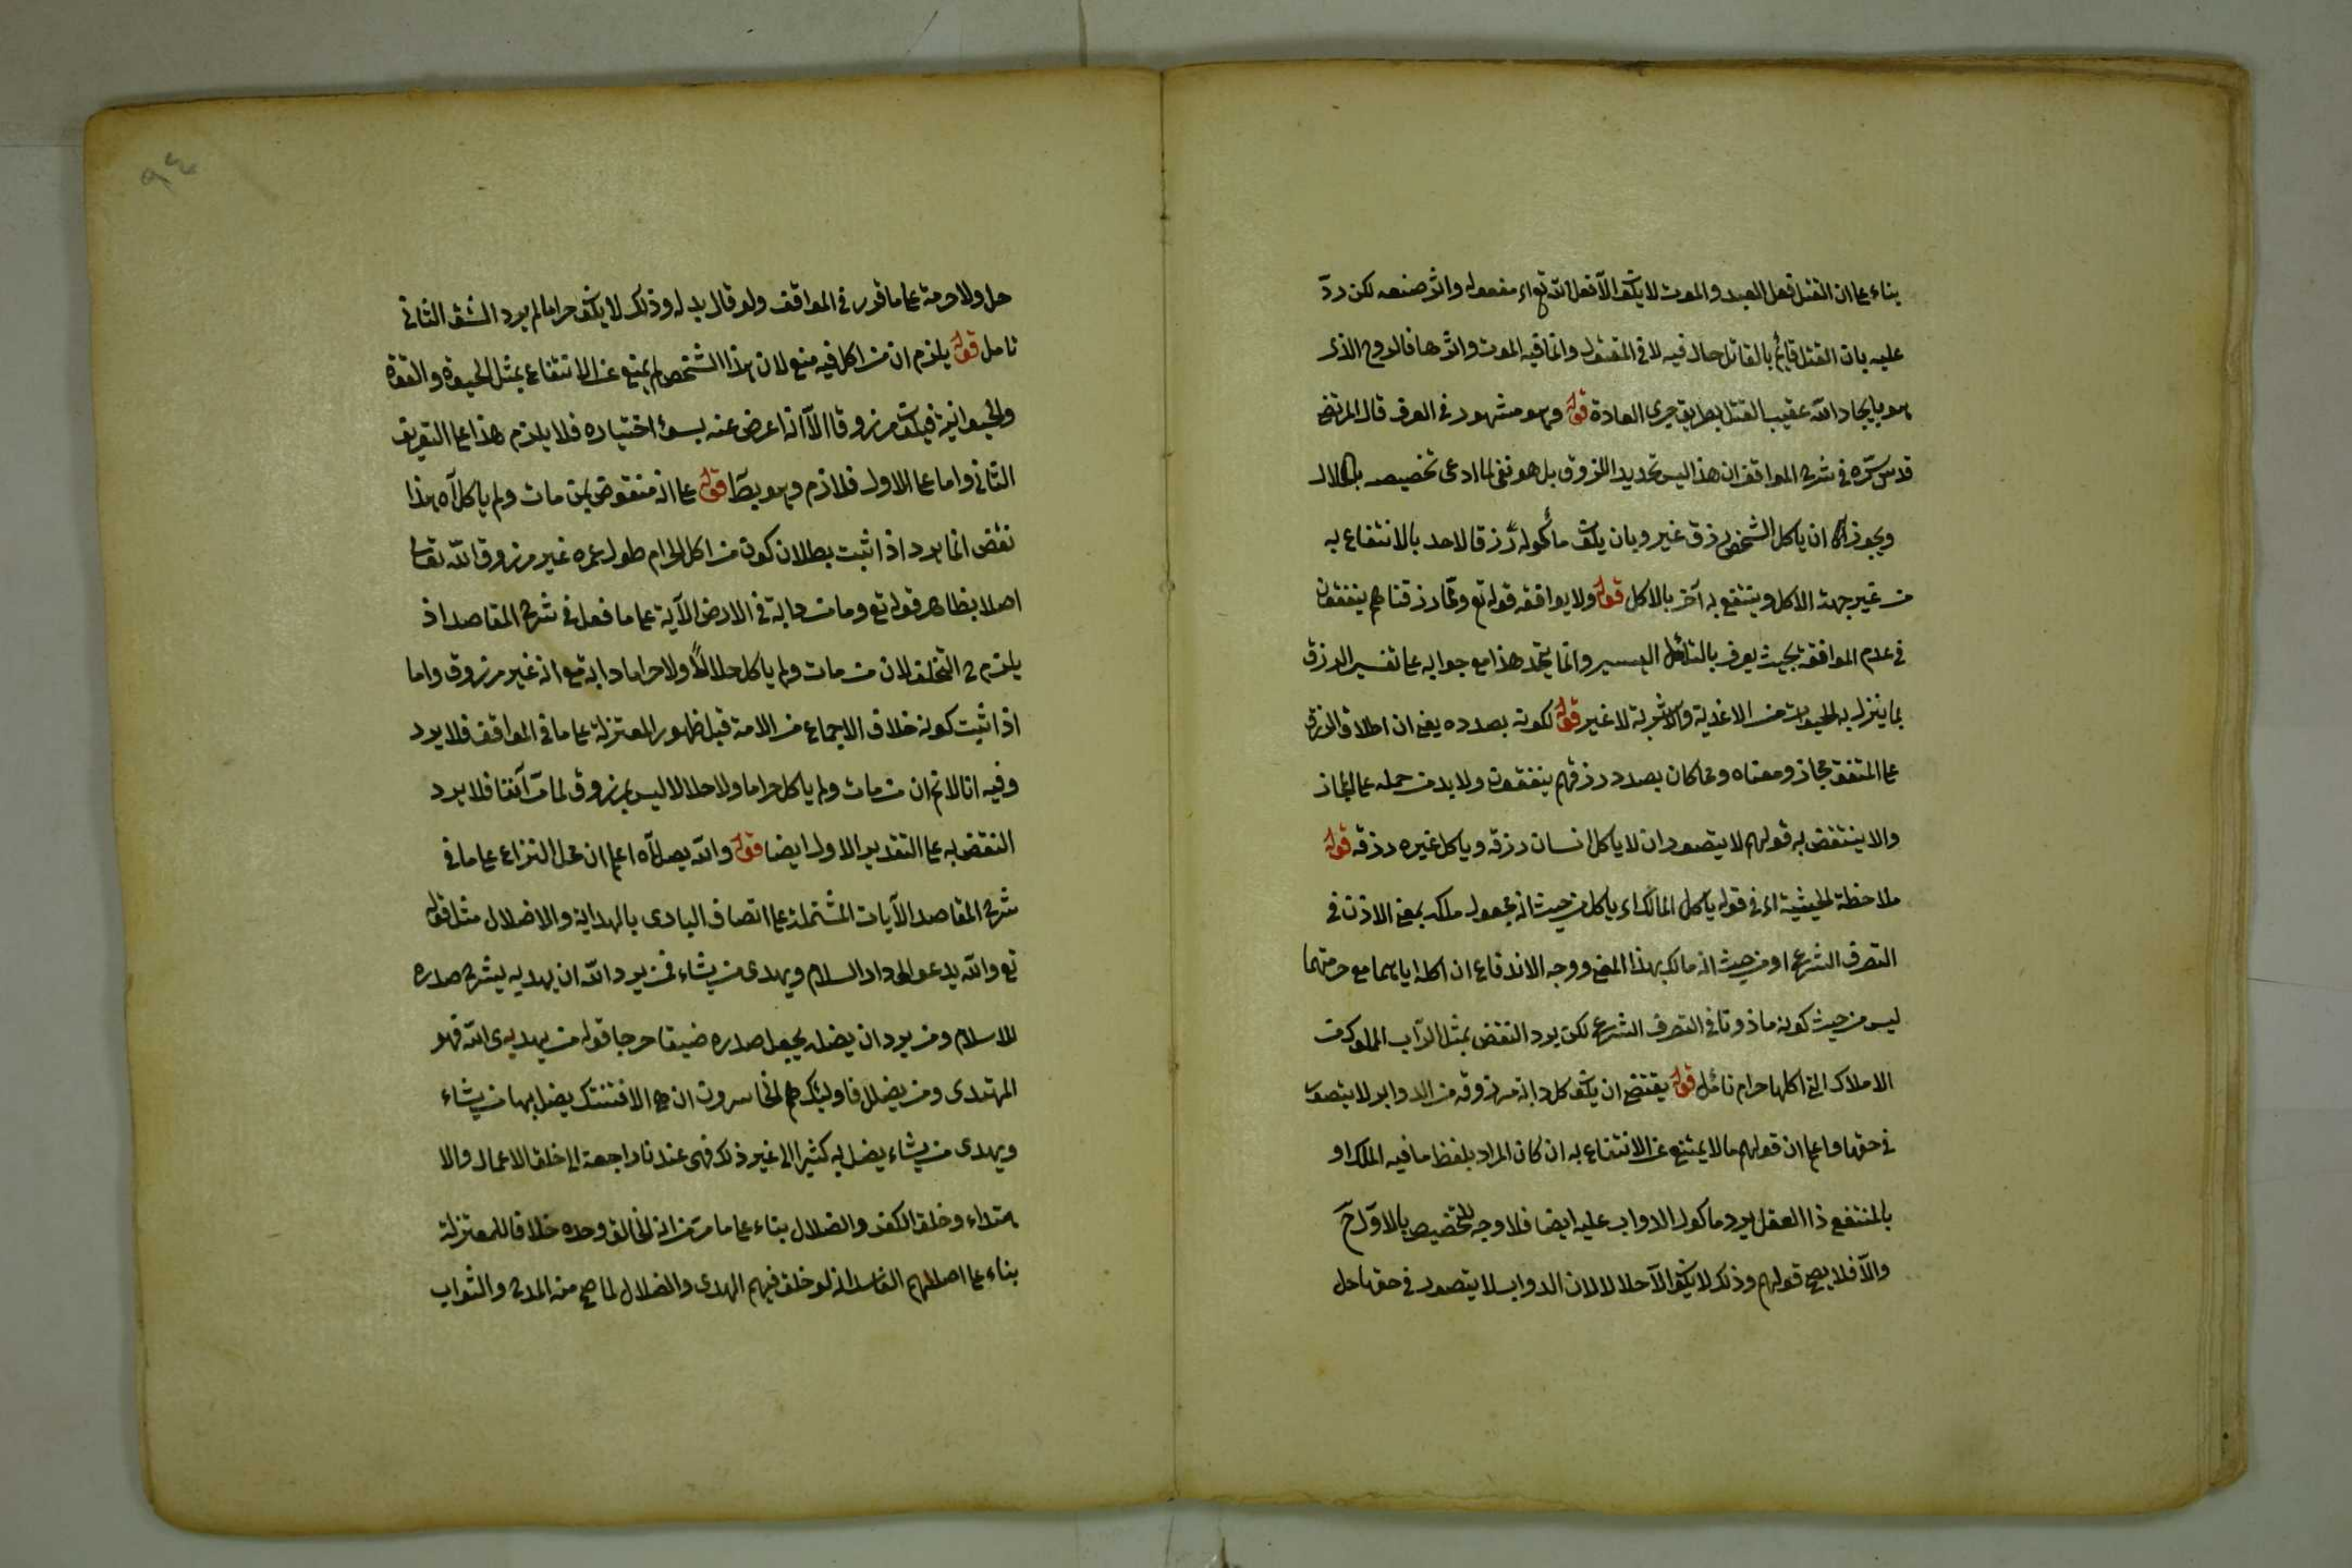 بناء على ان القتل فعل العبد والموت لا يكون الا فعل الله تع اى مفعوله واثر صنعه لكن ردّ
عليه بان القتل قائم بالقاتل حال فيه لا فى المقتول وانما فيه الموت واثرها فالروح الذى
هو بايجاد الله عقيب القتل بطريق جرى العادة قوله وهو مشهور فى العرف قال المرتضى
قدس سره فى شرح المواقف ان هذا ليس تحديدا للرزق بل هو نفى لما ادعى تخصيصه بالحلال
ويجوز ان ياكل الشخص رزق غيره وبان يكون مأكوله رزقا لاحد بالانتفاع به
من غير جهة الاكل وينتفع به آخر بالاكل قوله ولا يوافقه قوله تع ومما رزقناهم ينفقون
فى عدم الموافقة بحيث يعرف بالتأمل اليسير وانما يتجه هذا مع جوابه على تفسير الرزق
بما ينزل به الحيوان من الاغذية والاشربة لا غير قوله لكونه بصدده يعنى ان اطلاق الرزق
على المنفق مجاز ومعناه ومما كان بصدد رزقهم ينفقون ولا بد من حمله على المجاز
والا ينتقض به قولهم لا يتصور ان لا ياكل انسان رزقه وياكل غيره رزقه قوله
ملاحظة الحيثية اى فى قوله ياكل المالك اى ياكل من حيث انه مجعول ملكه بمعنى الاذن فى
التصرف الشرعى او من حيث انه مالك بهذا المعنى ووجه الاندفاع ان اكله اياهما مع حرمتهما
ليس من حيث كونه ماذونا فى التصرف الشرعى لكن يرد النقض بمثل التراب المملوك من
الاملاك التى اكلها حرام تأمل قوله يقتضى ان يكون كل دابة مرزوقة من الدواب ولا يتصور
فى حقها واعلم ان قولهم ما لا يمتنع عن الانتفاع به ان كان المراد بلفظ ما فيه الملك او
بالمنتفع ذا العقل يرد ماكول الدواب عليه ايضا فلا وجه للتخصيص بالاول ح
والا فلا يصح قولهم وذلك لا يكون الا حلالا لان الدواب لا يتصور فى حقها حل
حل ولا حرمة على ما قرر فى المواقف ولو قال بدله وذلك لا يكون حراما لم يرد الشق الثانى
تامل قوله يلزم ان من اكل فيه منع لان هذا الشخص لم يمتنع عن الانتفاع بمثل الحيوة والقوة
والحيوانية فيكون مرزوقا الا انه اعرض عنه بسوء اختياره فلا يلزم هذا على التعريف
الثانى واما على الاول فلازم وهو بط قوله على انه منقوض بمن مات ولم ياكل آه هذا
نقض انما يرد اذا ثبت بطلان كون من اكل الحرام طول عمره غير مرزوق الله تعالى
اصلا بظاهر قوله تع وما من دابة فى الارض الآية على ما فعل فى شرح المقاصد اذ
يلزم ح التخلف لان من مات ولم ياكل حلالا ولا حراما دابة مع انه غير مرزوق واما
اذا ثبت كونه خلاف الاجماع من الامة قبل ظهور المعتزلة على ما فى المواقف فلا يرد
وفيه انا لا نم ان من مات ولم ياكل حراما ولا حلالا ليس بمرزوق لما مر آنفا فلا يرد
النقض به على التقدير الاول ايضا قوله والله يضل آه اعلم ان محل النزاع على ما فى
شرح المقاصد الآيات المشتملة على اتصاف البارى بالهداية والاضلال مثل قوله
تع والله يدعو الى دار السلام ويهدى من يشاء فمن يرد الله ان يهديه يشرح صدره
للاسلام ومن يرد ان يضله يجعل صدره ضيقا حرجا قوله من يهدى الله فهو
المهتدى ومن يضلل فاولئك هم الخاسرون ان هى الا فتنتك يضل بها من يشاء
ويهدى من يشاء يضل به كثيرا الى غير ذلك فهى عندنا راجعة الى خلق الاعمال والا
هتداء وخلق الكفر والضلال بناء على ما مر من انه الخالق وحده خلافا للمعتزلة
بناء على اصلهم الفاسد انه لو خلق فيهم الهدى والضلال لما صح منه المدح والثواب